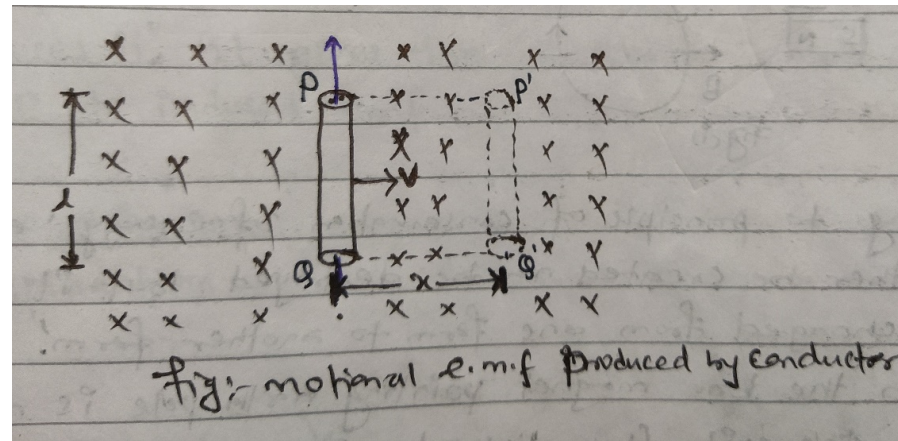 P
P'
V
l
Q
Q'
x
fig:- motional e.m.f produced by conductor